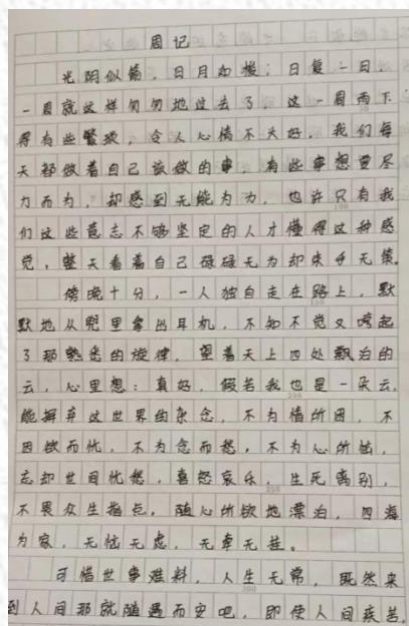 周记
光阴似箭，日月如梭；日复一日，
一周就这样匆匆地过去了，这一周雨下
得有些繁琐，令人心情不大好，我们每
天都做着自己该做的事，有些事想要尽
力而为，却感到无能为力，也许只有我
们这些意志不够坚定的人才懂得这种感
觉，整天看着自己碌碌无为却束手无策。
傍晚十分，一人独自走在路上，默
默地从兜里拿出耳机，不知不觉又响起
了那熟悉的旋律，望着天上四处飘泊的
云，心里想：真好，假若我也是一朵云，
能摒弃这世界的杂念，不为情所困，不
因欲而忧，不为念而愁，不为心所怯，
忘却世间忧愁，喜怒哀乐，生死离别，
不畏众生指点，随心所欲地漂泊，四海
为家，无忧无虑，无牵无挂。
可惜世事难料，人生无常，既然来
到人间那就随遇而安吧，即使人间疾苦，